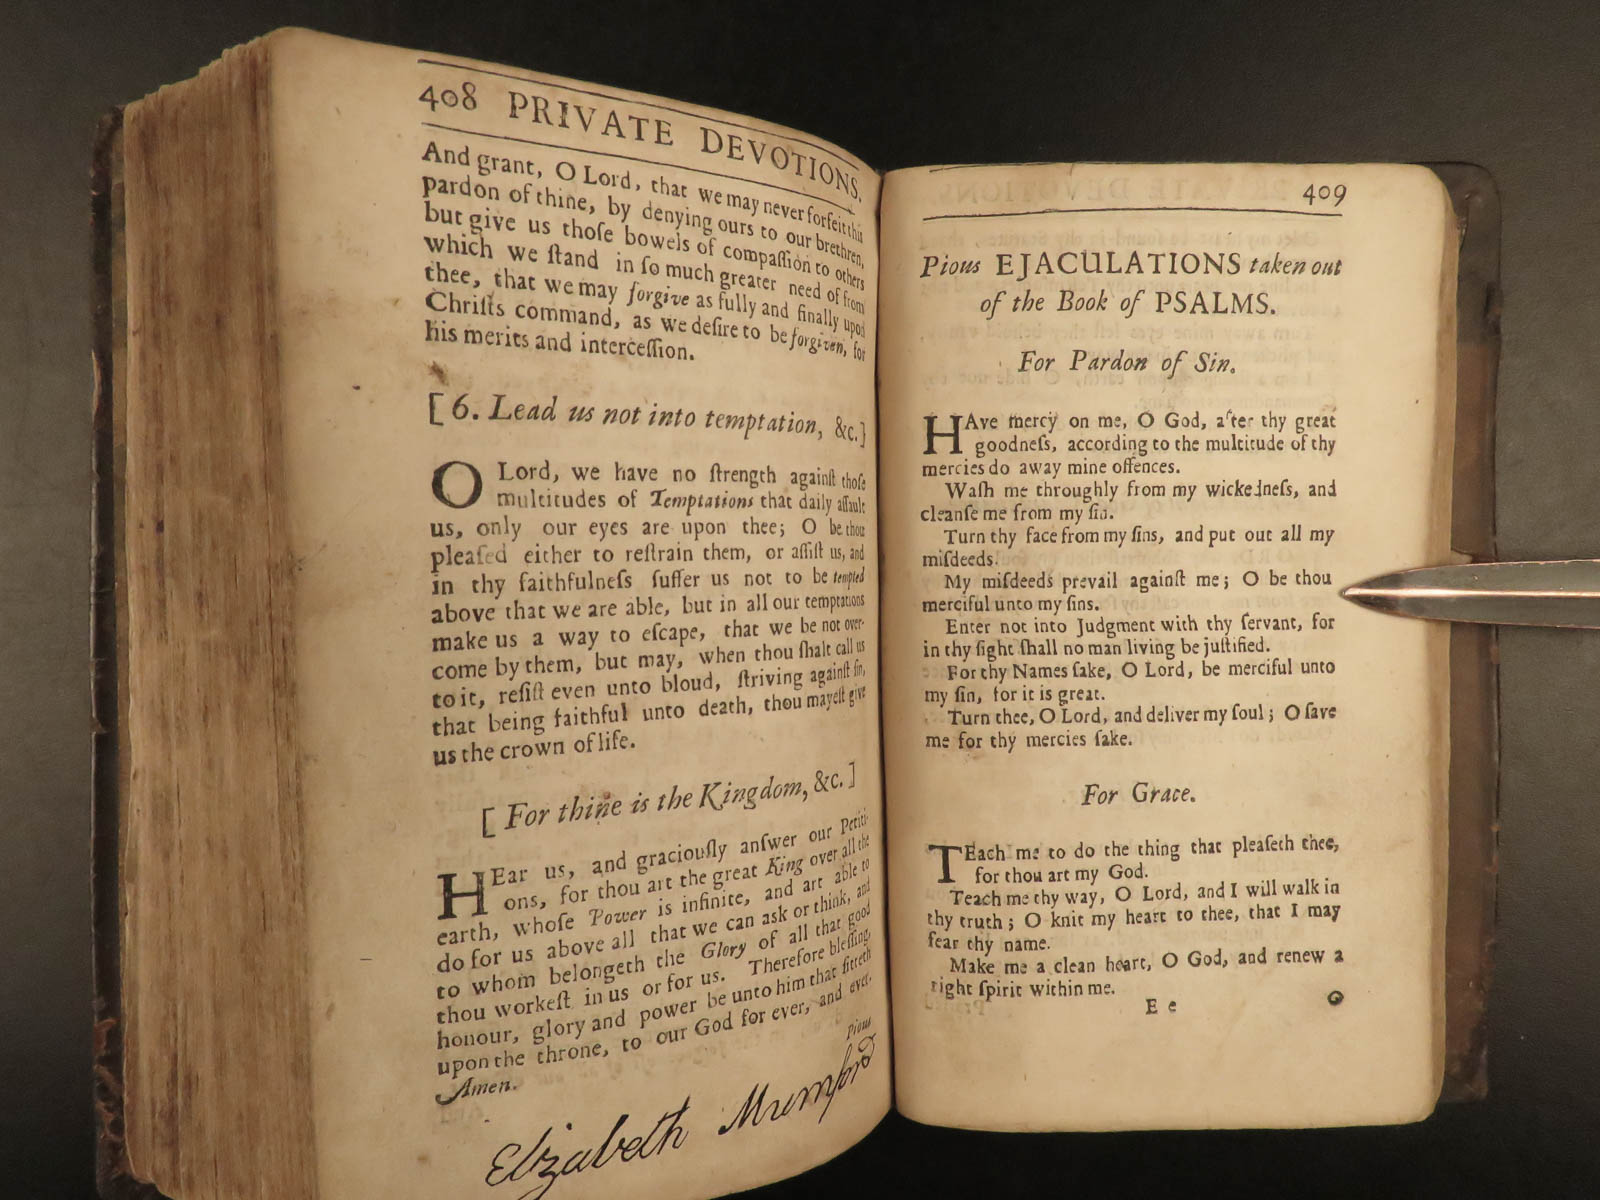 408 PRIVATE DEVOTIONS.
And grant, O Lord, that we may never forfeit this
pardon of thine, by denying ours to our brethren,
but give us thoſe bowels of compaſſion to others
which we ſtand in ſo much greater need of from
thee, that we may forgive as fully and finally upon
Chriſts command, as we deſire to be forgiven, for
his merits and interceſſion.
[ 6. Lead us not into temptation, &c.]
O Lord, we have no ſtrength againſt thoſe
multitudes of Temptations that daily aſſault
us, only our eyes are upon thee; O be thou
pleaſed either to reſtrain them, or aſſiſt us, and
in thy faithfulneſs ſuffer us not to be tempted
above that we are able, but in all our temptations
make us a way to eſcape, that we be not over-
come by them, but may, when thou ſhalt call us
to it, reſiſt even unto bloud, ſtriving againſt ſin,
that being faithful unto death, thou mayeſt give
us the crown of life.
[ For thine is the Kingdom, &c. ]
HEar us, and graciouſly anſwer our Petiti-
ons, for thou art the great King over all the
earth, whoſe Power is infinite, and art able to
do for us above all that we can ask or think, and
to whom belongeth the Glory of all that good
thou workeſt in us or for us. Therefore bleſſing,
honour, glory and power be unto him that ſitteth
upon the throne, to our God for ever, and ever.
Amen.
Pious
Elizabeth Mumford
409
Pious EJACULATIONS taken out
of the Book of PSALMS.
For Pardon of Sin.
HAve mercy on me, O God, after thy great
goodneſs, according to the multitude of thy
mercies do away mine offences.
Waſh me throughly from my wickedneſs, and
cleanſe me from my ſin.
Turn thy face from my ſins, and put out all my
miſdeeds.
My miſdeeds prevail againſt me; O be thou
merciful unto my ſins.
Enter not into Judgment with thy ſervant, for
in thy ſight ſhall no man living be juſtified.
For thy Names ſake, O Lord, be merciful unto
my ſin, for it is great.
Turn thee, O Lord, and deliver my ſoul; O ſave
me for thy mercies ſake.
For Grace.
TEach me to do the thing that pleaſeth thee,
for thou art my God.
Teach me thy way, O Lord, and I will walk in
thy truth; O knit my heart to thee, that I may
fear thy name.
Make me a clean heart, O God, and renew a
right ſpirit within me.
E e O